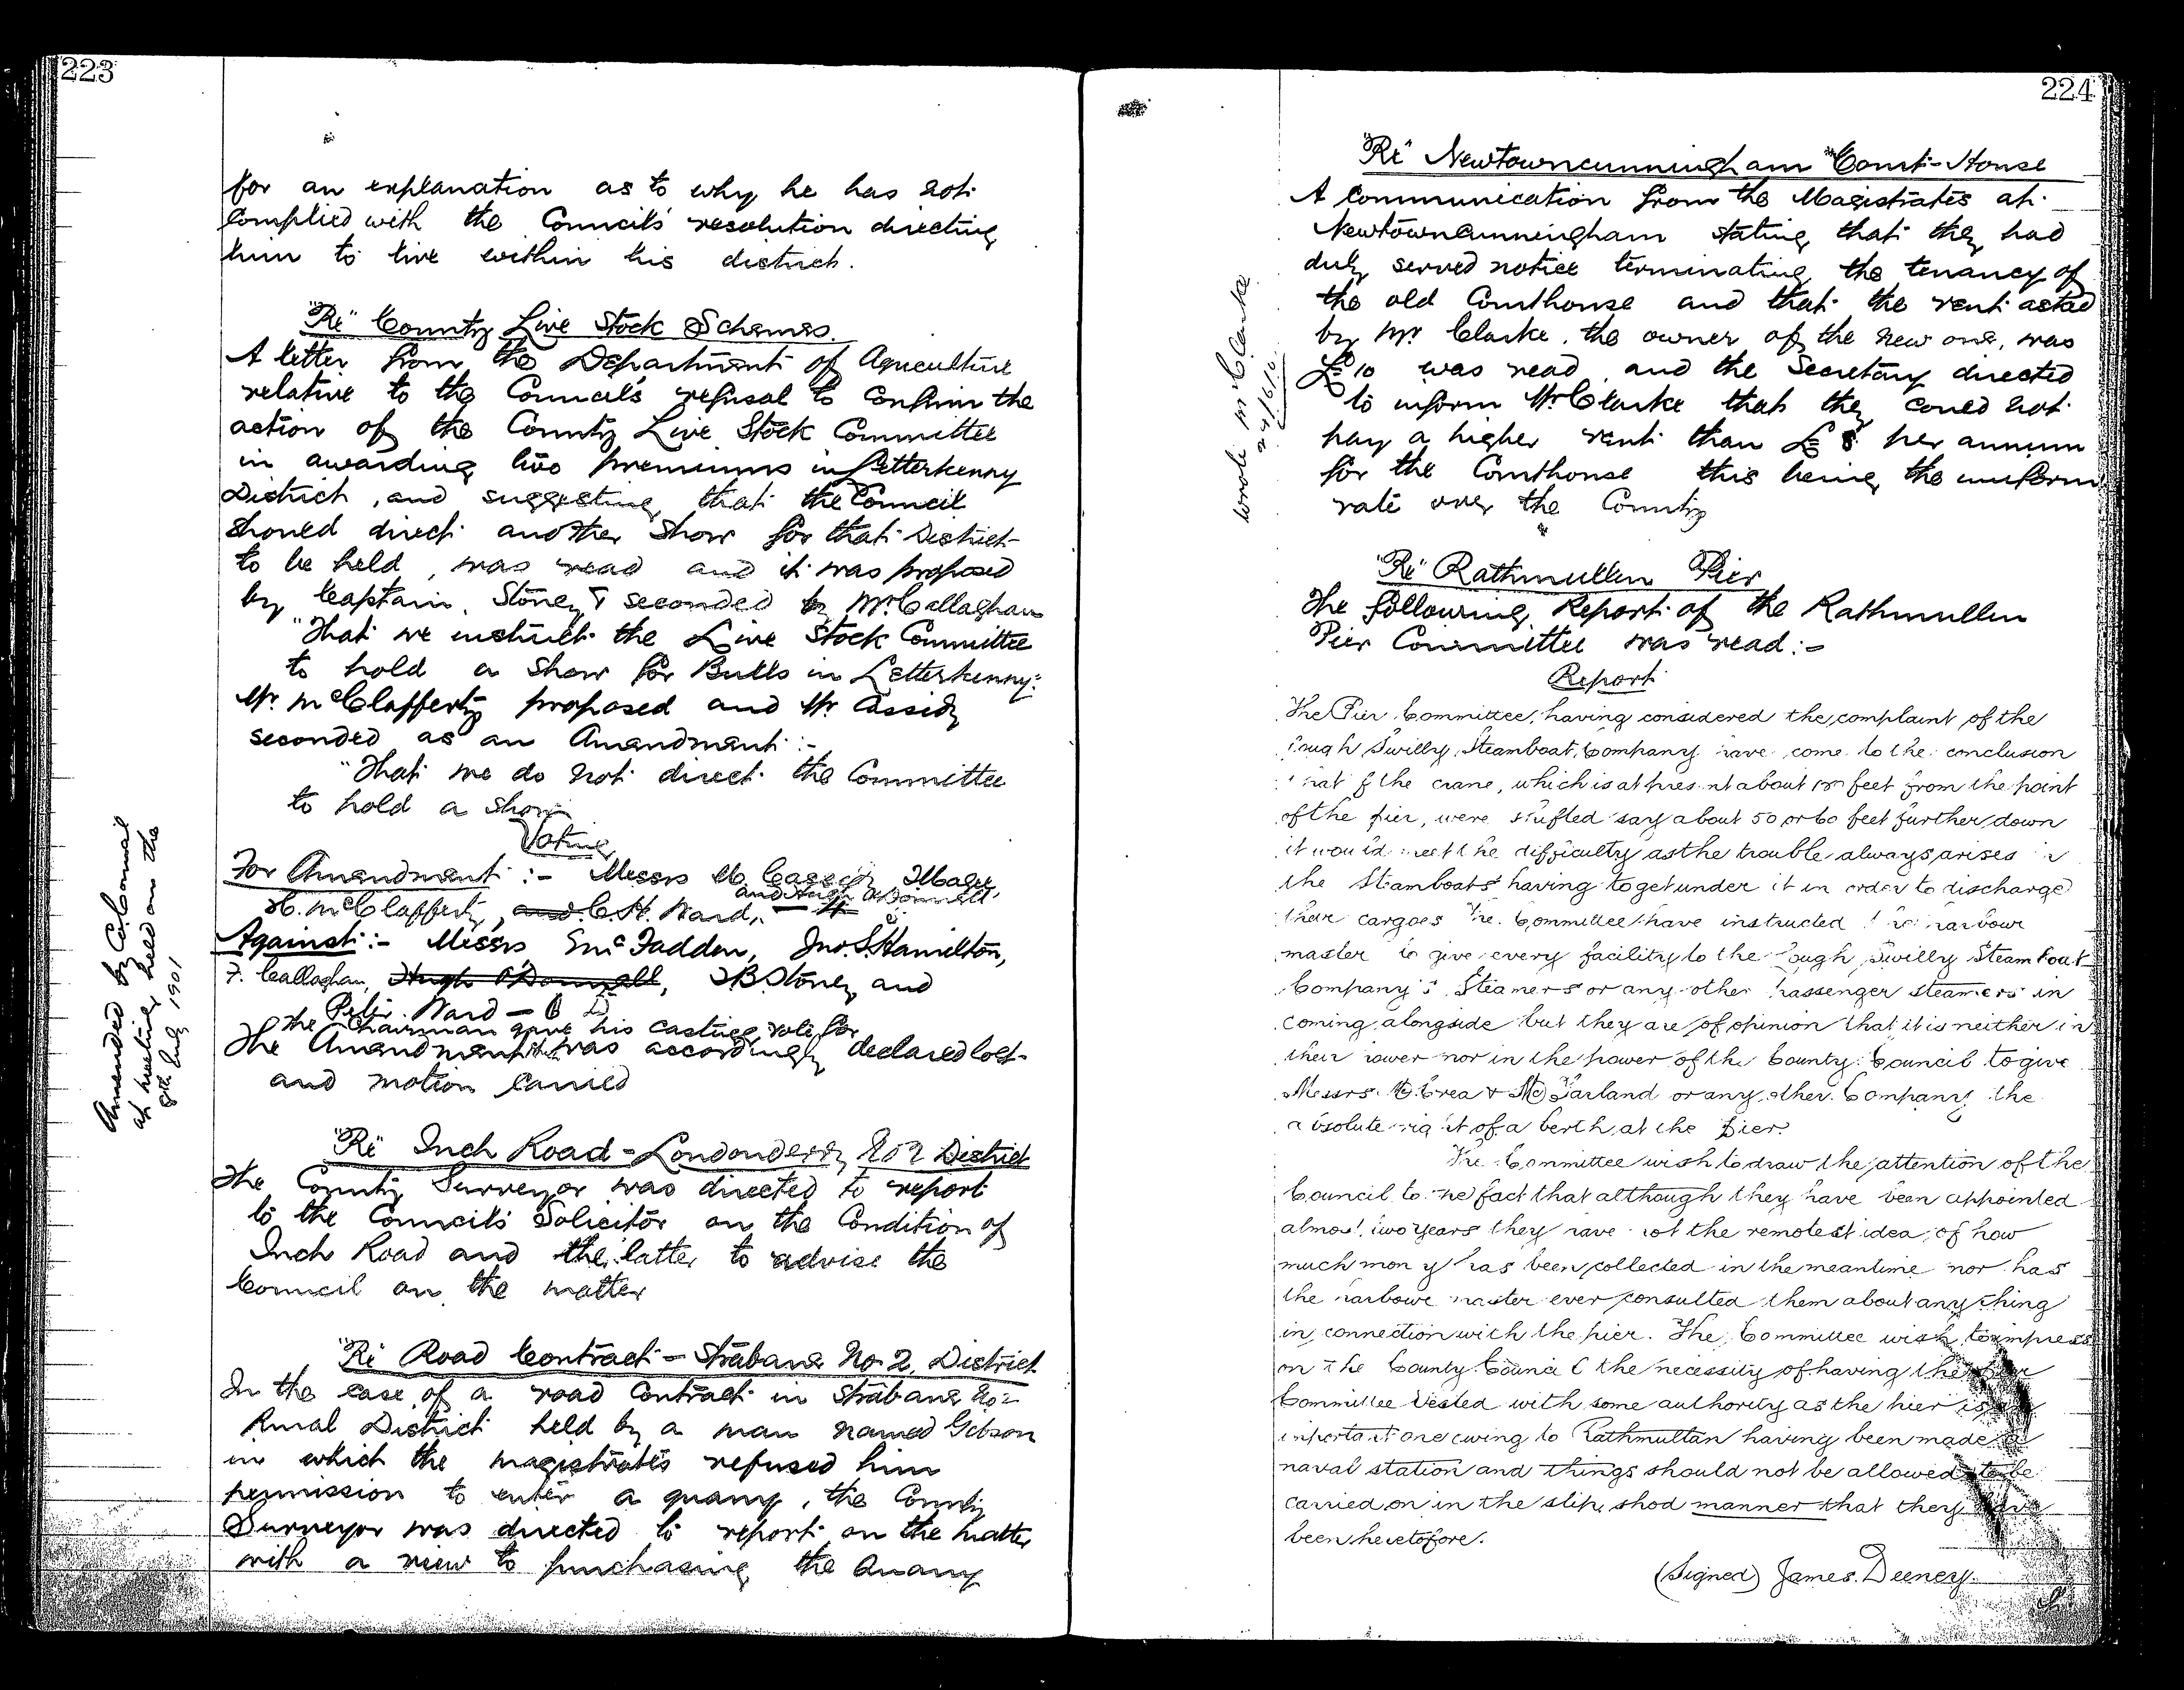 223
for an explanation as to why he has not
complied with the Council's resolution directing
him to live within his district.
"Re" County Live Stock Schemes.
A letter from the Department of Agriculture
relative to the Council's refusal to confirm the
action of the County Live Stock Committee
in awarding two premiums in Letterkenny
District, and suggesting that the Council
should direct another Show for that District
to be held, was read and it was proposed
by Captain Stoney & seconded by Mr Callaghan
"That we instruct the Live Stock Committee
to hold a Show for Bulls in Letterkenny."
Mr. McClafferty proposed and Mr Cassidy
seconded as an Amendment :-
"That we do not direct the Committee
to hold a Show
Voting
For Amendment :- Messrs M. Cassidy,
and Hugh O'Donnell,
H. McClafferty, and C.H. Ward,
Against :- Messrs E McFadden, Jno. S. Hamilton,
F. Callaghan, Hugh O'Donnell, J B Stoney and
Peter Ward - 6
The Chairman gave his casting vote for
The Amendment was accordingly declared lost
and motion carried
Amended by Co Council
at meeting held on the
8th July 1901
"Re" Inch Road - Londonderry No 2 District
The County Surveyor was directed to report
to the Council's Solicitor on the Condition of
Inch Road and the latter to advise the
Council on the matter
"Re" Road Contract - Strabane No. 2. District
In the case of a road contract in Strabane No 2
Rural District held by a man named Gibson
in which the magistrates refused him
permission to enter a quarry, the County
Surveyor was directed to report on the matter
with a view to purchasing the Quarry
224
"Re" Newtowncunningham Court-House
A Communication from the Magistrates at
Newtowncunningham stating that they had
duly served notice terminating the tenancy of
the old Courthouse and that the rent asked
by Mr Clarke, the owner of the new one, was
£10 was read, and the Secretary directed
to inform Mr Clarke that they could not
pay a higher rent than £8 per annum
for the Courthouse this being the uniform
rate over the County
wrote Mr Clarke
"Re" Rathmullen Pier
The following Report of the Rathmullen
Pier Committee was read :-
Report
The Pier Committee, having considered the complaint of the
Lough Swilly Steamboat Company have come to the conclusion
that if the crane, which is at present about 100 feet from the point
of the pier, were shifted say about 50 or 60 feet further down
it would meet the difficulty as the trouble always arises in
the Steamboats having to get under it in order to discharge
their cargoes The Committee have instructed the harbour
master to give every facility to the Lough Swilly Steam Boat
Company's Steamers or any other passenger steamers in
coming alongside but they are of opinion that it is neither in
their power nor in the power of the County Council to give
Messrs. McCrea & McFarland or any other Company the
absolute right of a berth at the Pier.
The Committee wish to draw the attention of the
Council to the fact that although they have been appointed
almost two years they have not the remotest idea of how
much money has been collected in the meantime nor has
the harbour master ever consulted them about anything
in connection with the pier. The Committee wish to impress
on the County Council the necessity of having the Pier
Committee vested with some authority as the pier is an
important one owing to Rathmullan having been made a
naval station and things should not be allowed to be
carried on in the slip shod manner that they have
been heretofore.
(Signed) James Deeney.